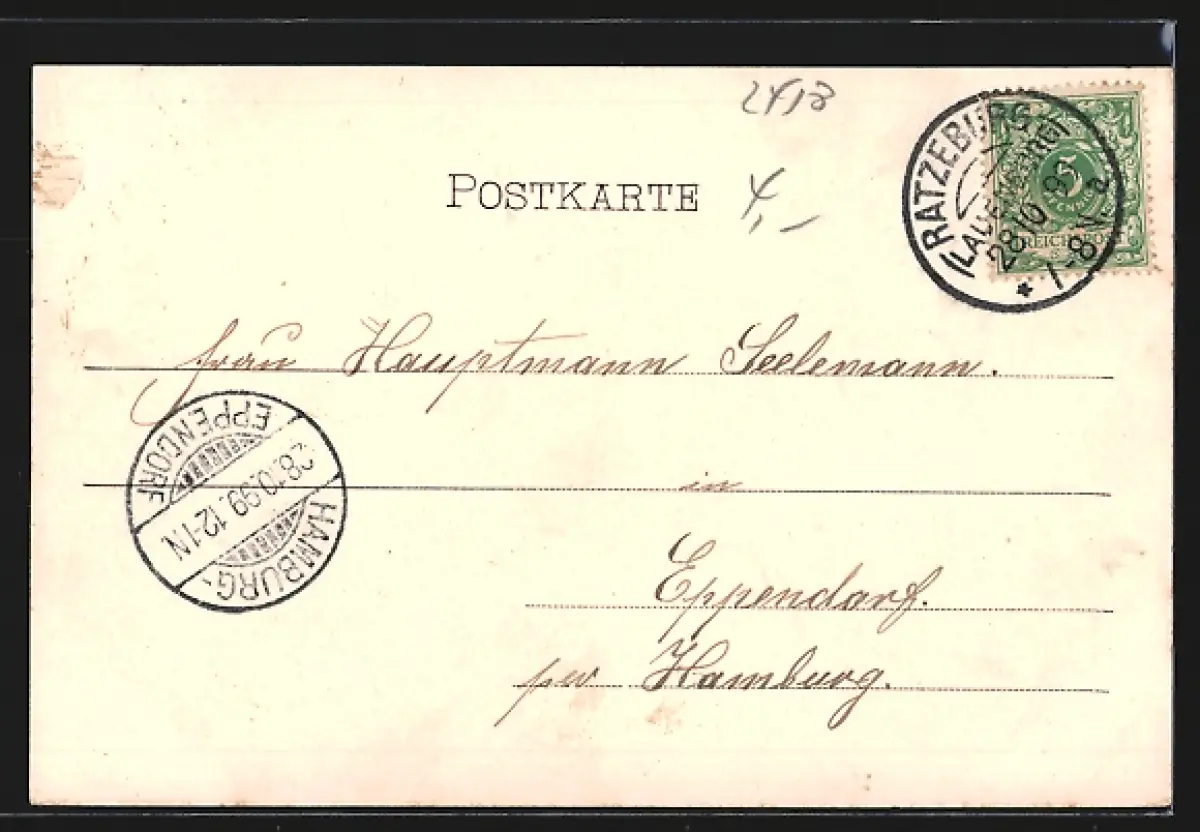 2413
POSTKARTE
4,-
RATZEBURG
(LAUENBURG)
28 10 99
7-8 V.
5
PFENNIG
REICHSPOST
Frau Hauptmann Seelemann.
in
Eppendorf.
per Hamburg.
HAMBURG-
EPPENDORF
28.10.99. 12-1N